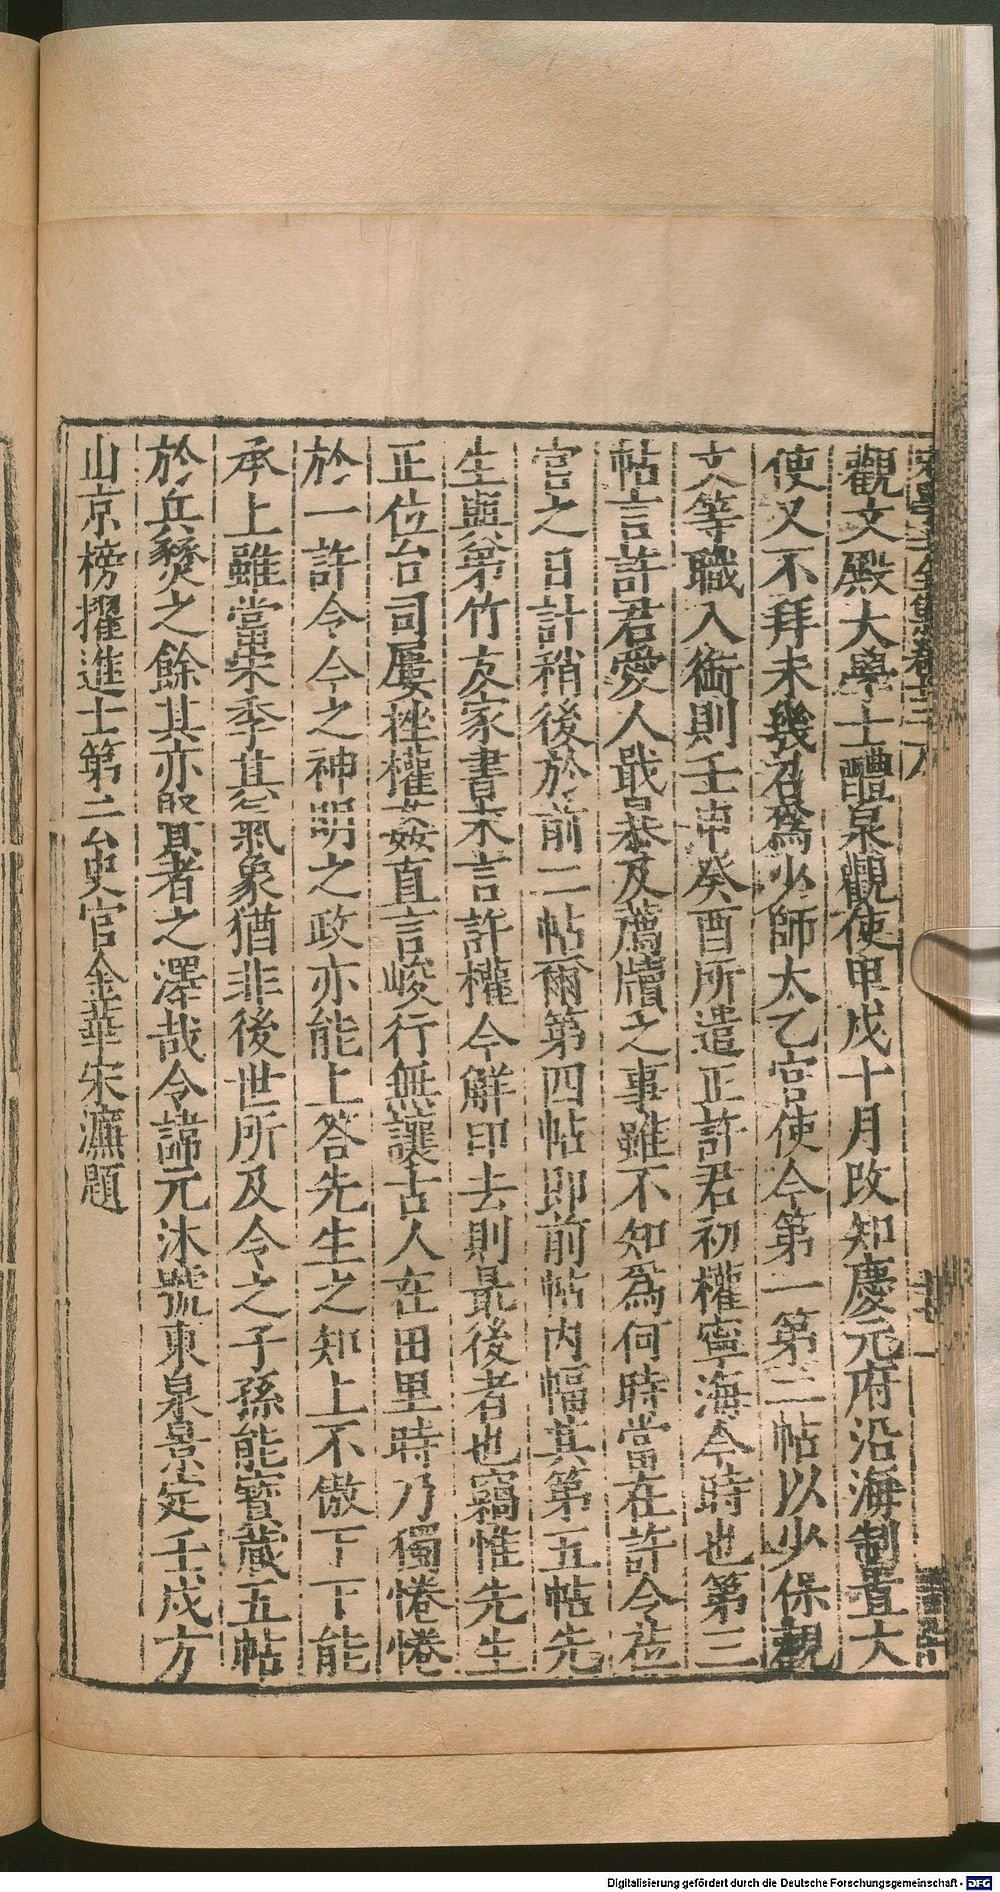 觀文殿大學士醴泉觀使甲戍十月改知慶元府沿海制置大
使又不拜未幾召爲少師太乙宮使今第一第二帖以少保觀
文等職入銜則壬申癸酉所遣正許君初權寧海令時也第三
帖言許君愛人戢暴及薦牘之事雖不知爲何時當在許令莅
官之日計稍後於前二帖爾第四帖即前帖內幅其第五帖先
生與弟竹友家書末言許權令解印去則最後者也竊惟先生
正位台司屢挫權姦直言峻行無讓古人在田里時乃獨惓惓
於一許令令之神明之政亦能上答先生之知上不傲下下能
承上雖當宋季其氣象猶非後世所及令之子孫能寶藏五帖
於兵燹之餘其亦賢者之澤哉令諱元沐號東泉景定壬戍方
山京榜擢進士第云史官金華宋濂題
Digitalisierung gefördert durch die Deutsche Forschungsgemeinschaft - DFG